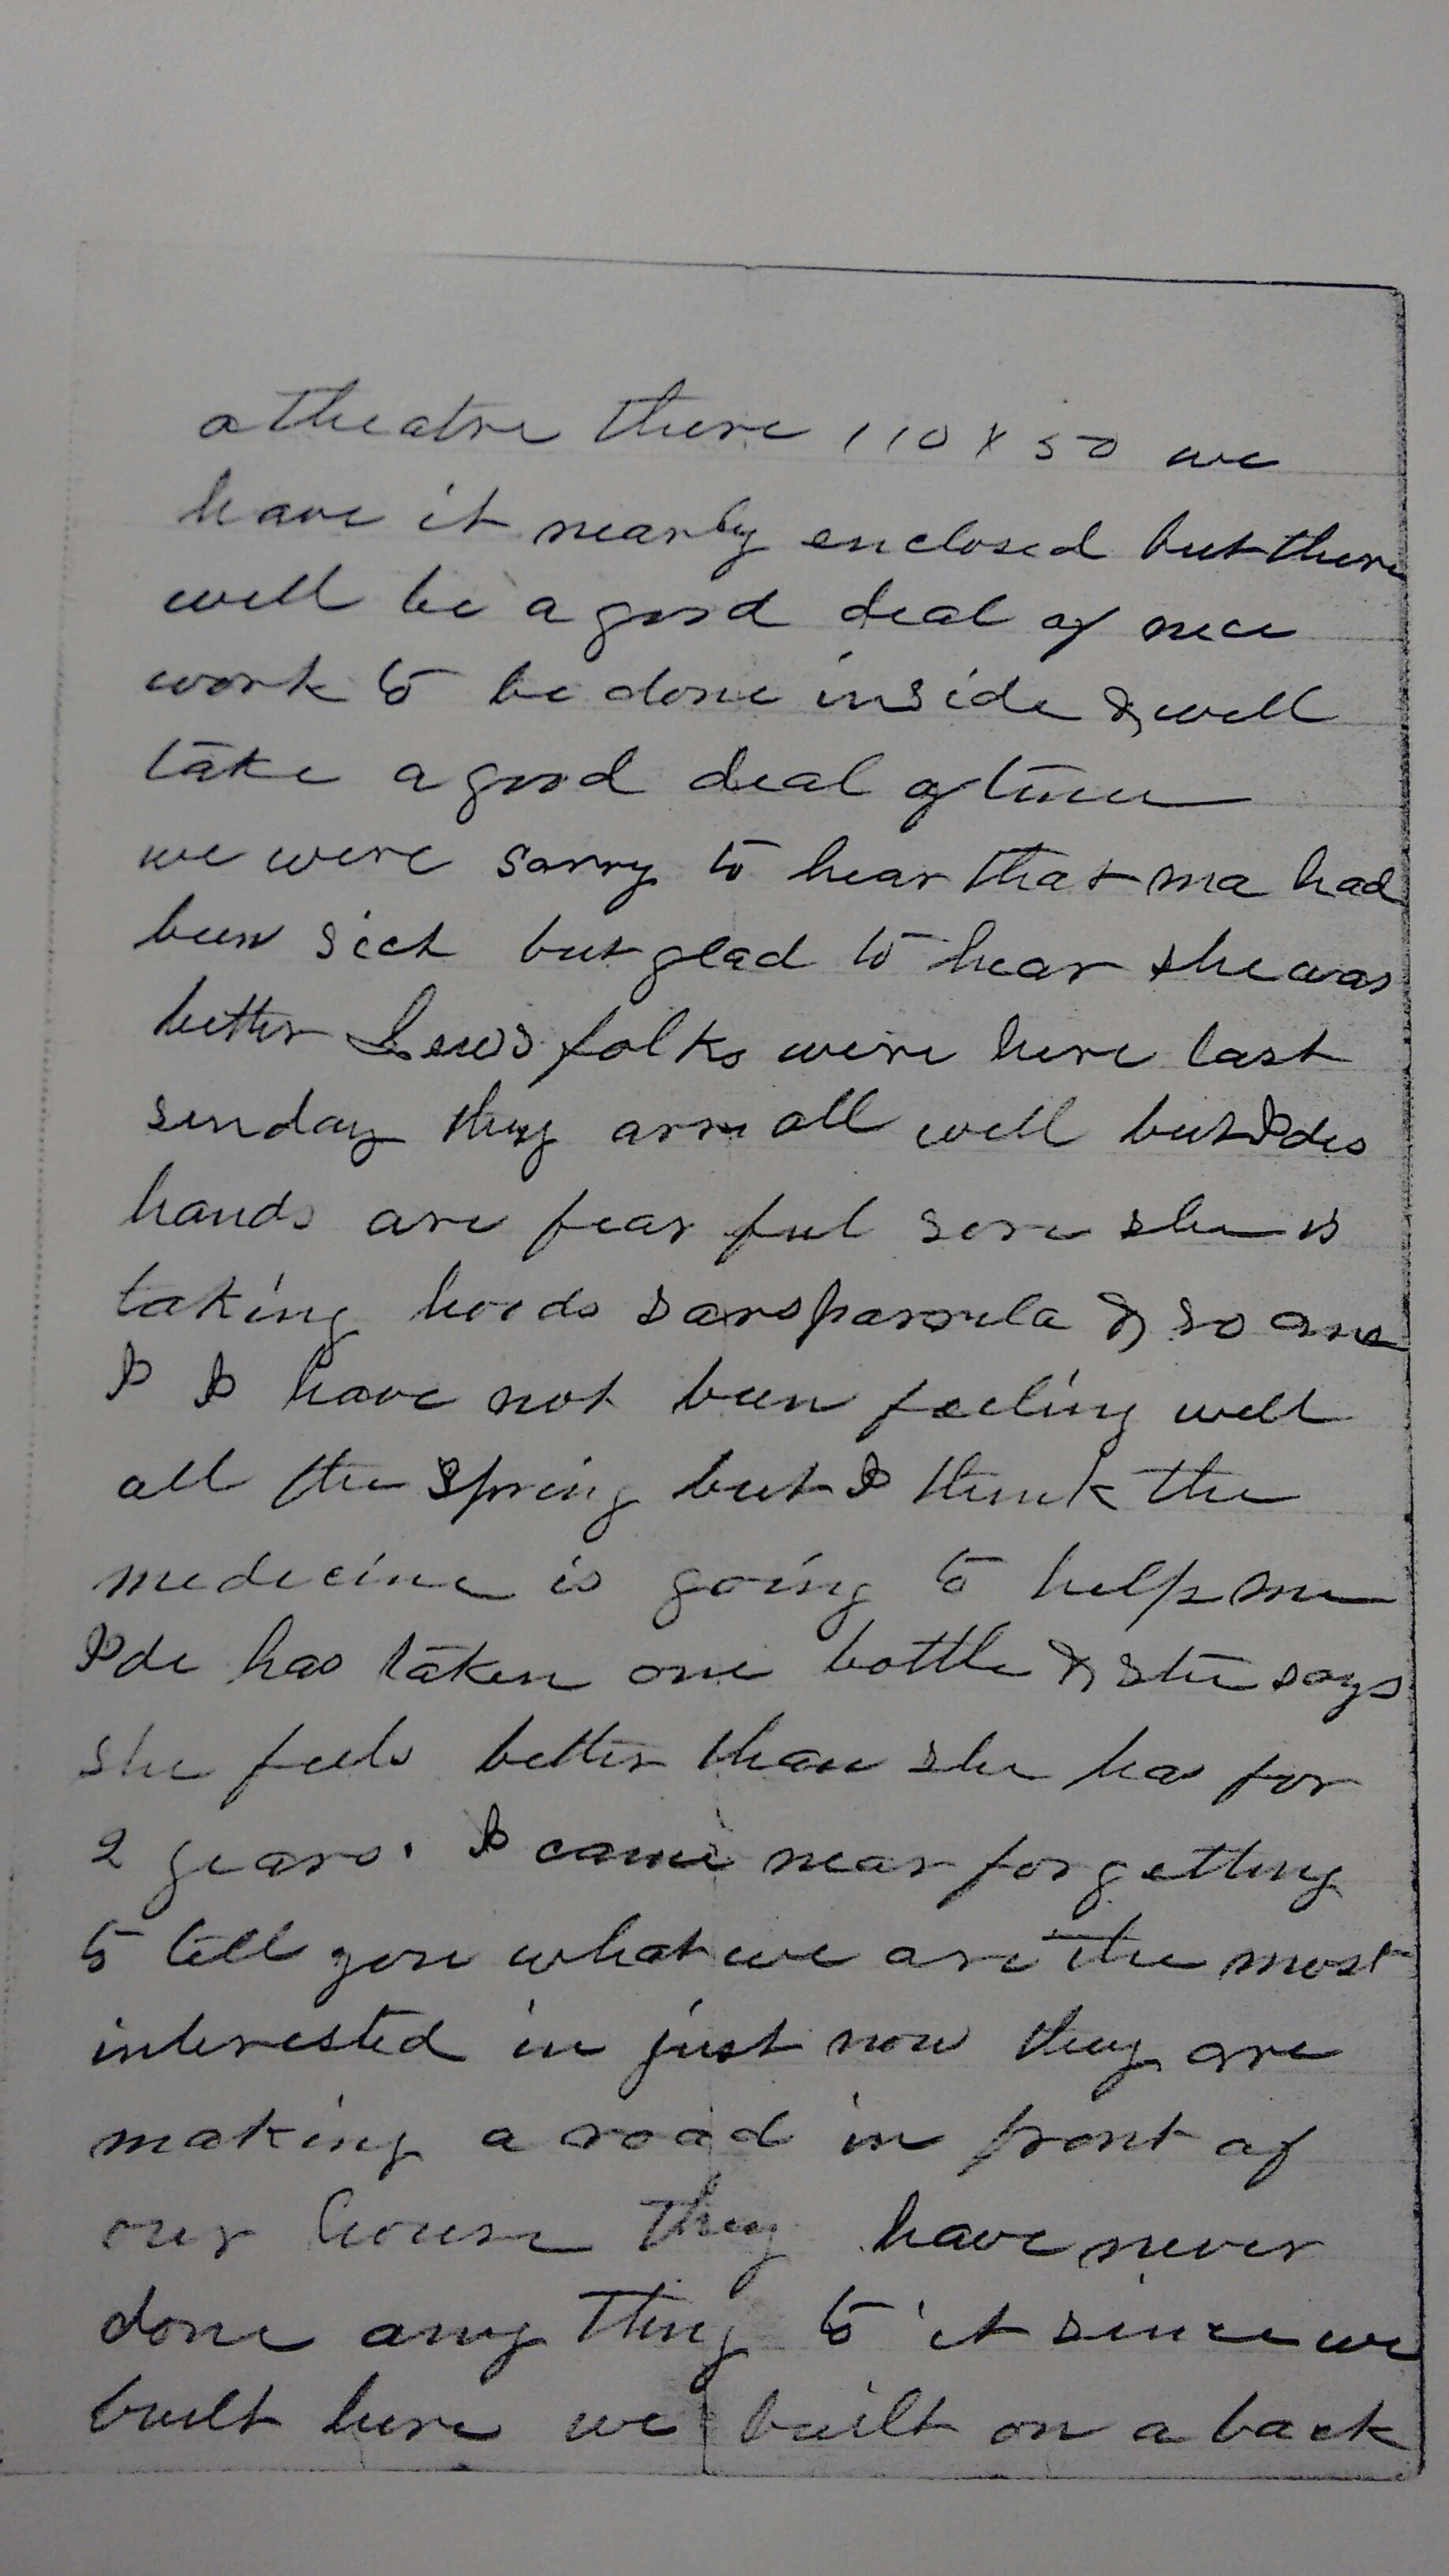 a theatre there 110 X 50 we
have it nearly enclosed but there
will be a good deal of nice
work to be done inside & will
take a good deal of time
we were sorry to hear that ma had
been sick but glad to hear she was
better Lew's folks were here last
sunday they are all well but Ides
hands are fear ful sore she is
taking hoods sarsparrila & so am
I I have not been feeling well
all the Spring but I think the
medicine is going to help me
Ide has taken one bottle & she says
she feels better than she has for
2 years. I came near forgetting
to tell you what we are the most
interested in just now they are
making a road in front of
our house they have never
done any thing to it since we
built here we built on a back